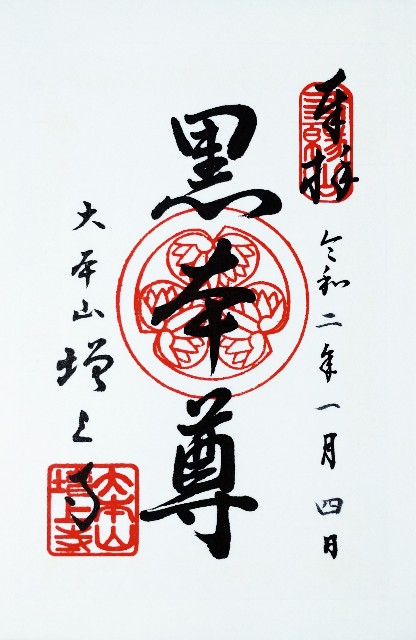 奉拝
令和二年一月四日
黒本尊
大本山増上寺
大本山
増上寺